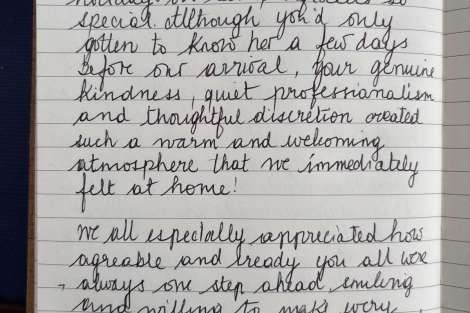 special. Although you'd only
gotten to know her a few days
before our arrival, your genuine
kindness, quiet professionalism
and thoughtful discretion created
such a warm and welcoming
atmosphere that we immediately
felt at home!
We all especially appreciated how
agreable and ready you all were
always one step ahead, smiling
and willing to make every